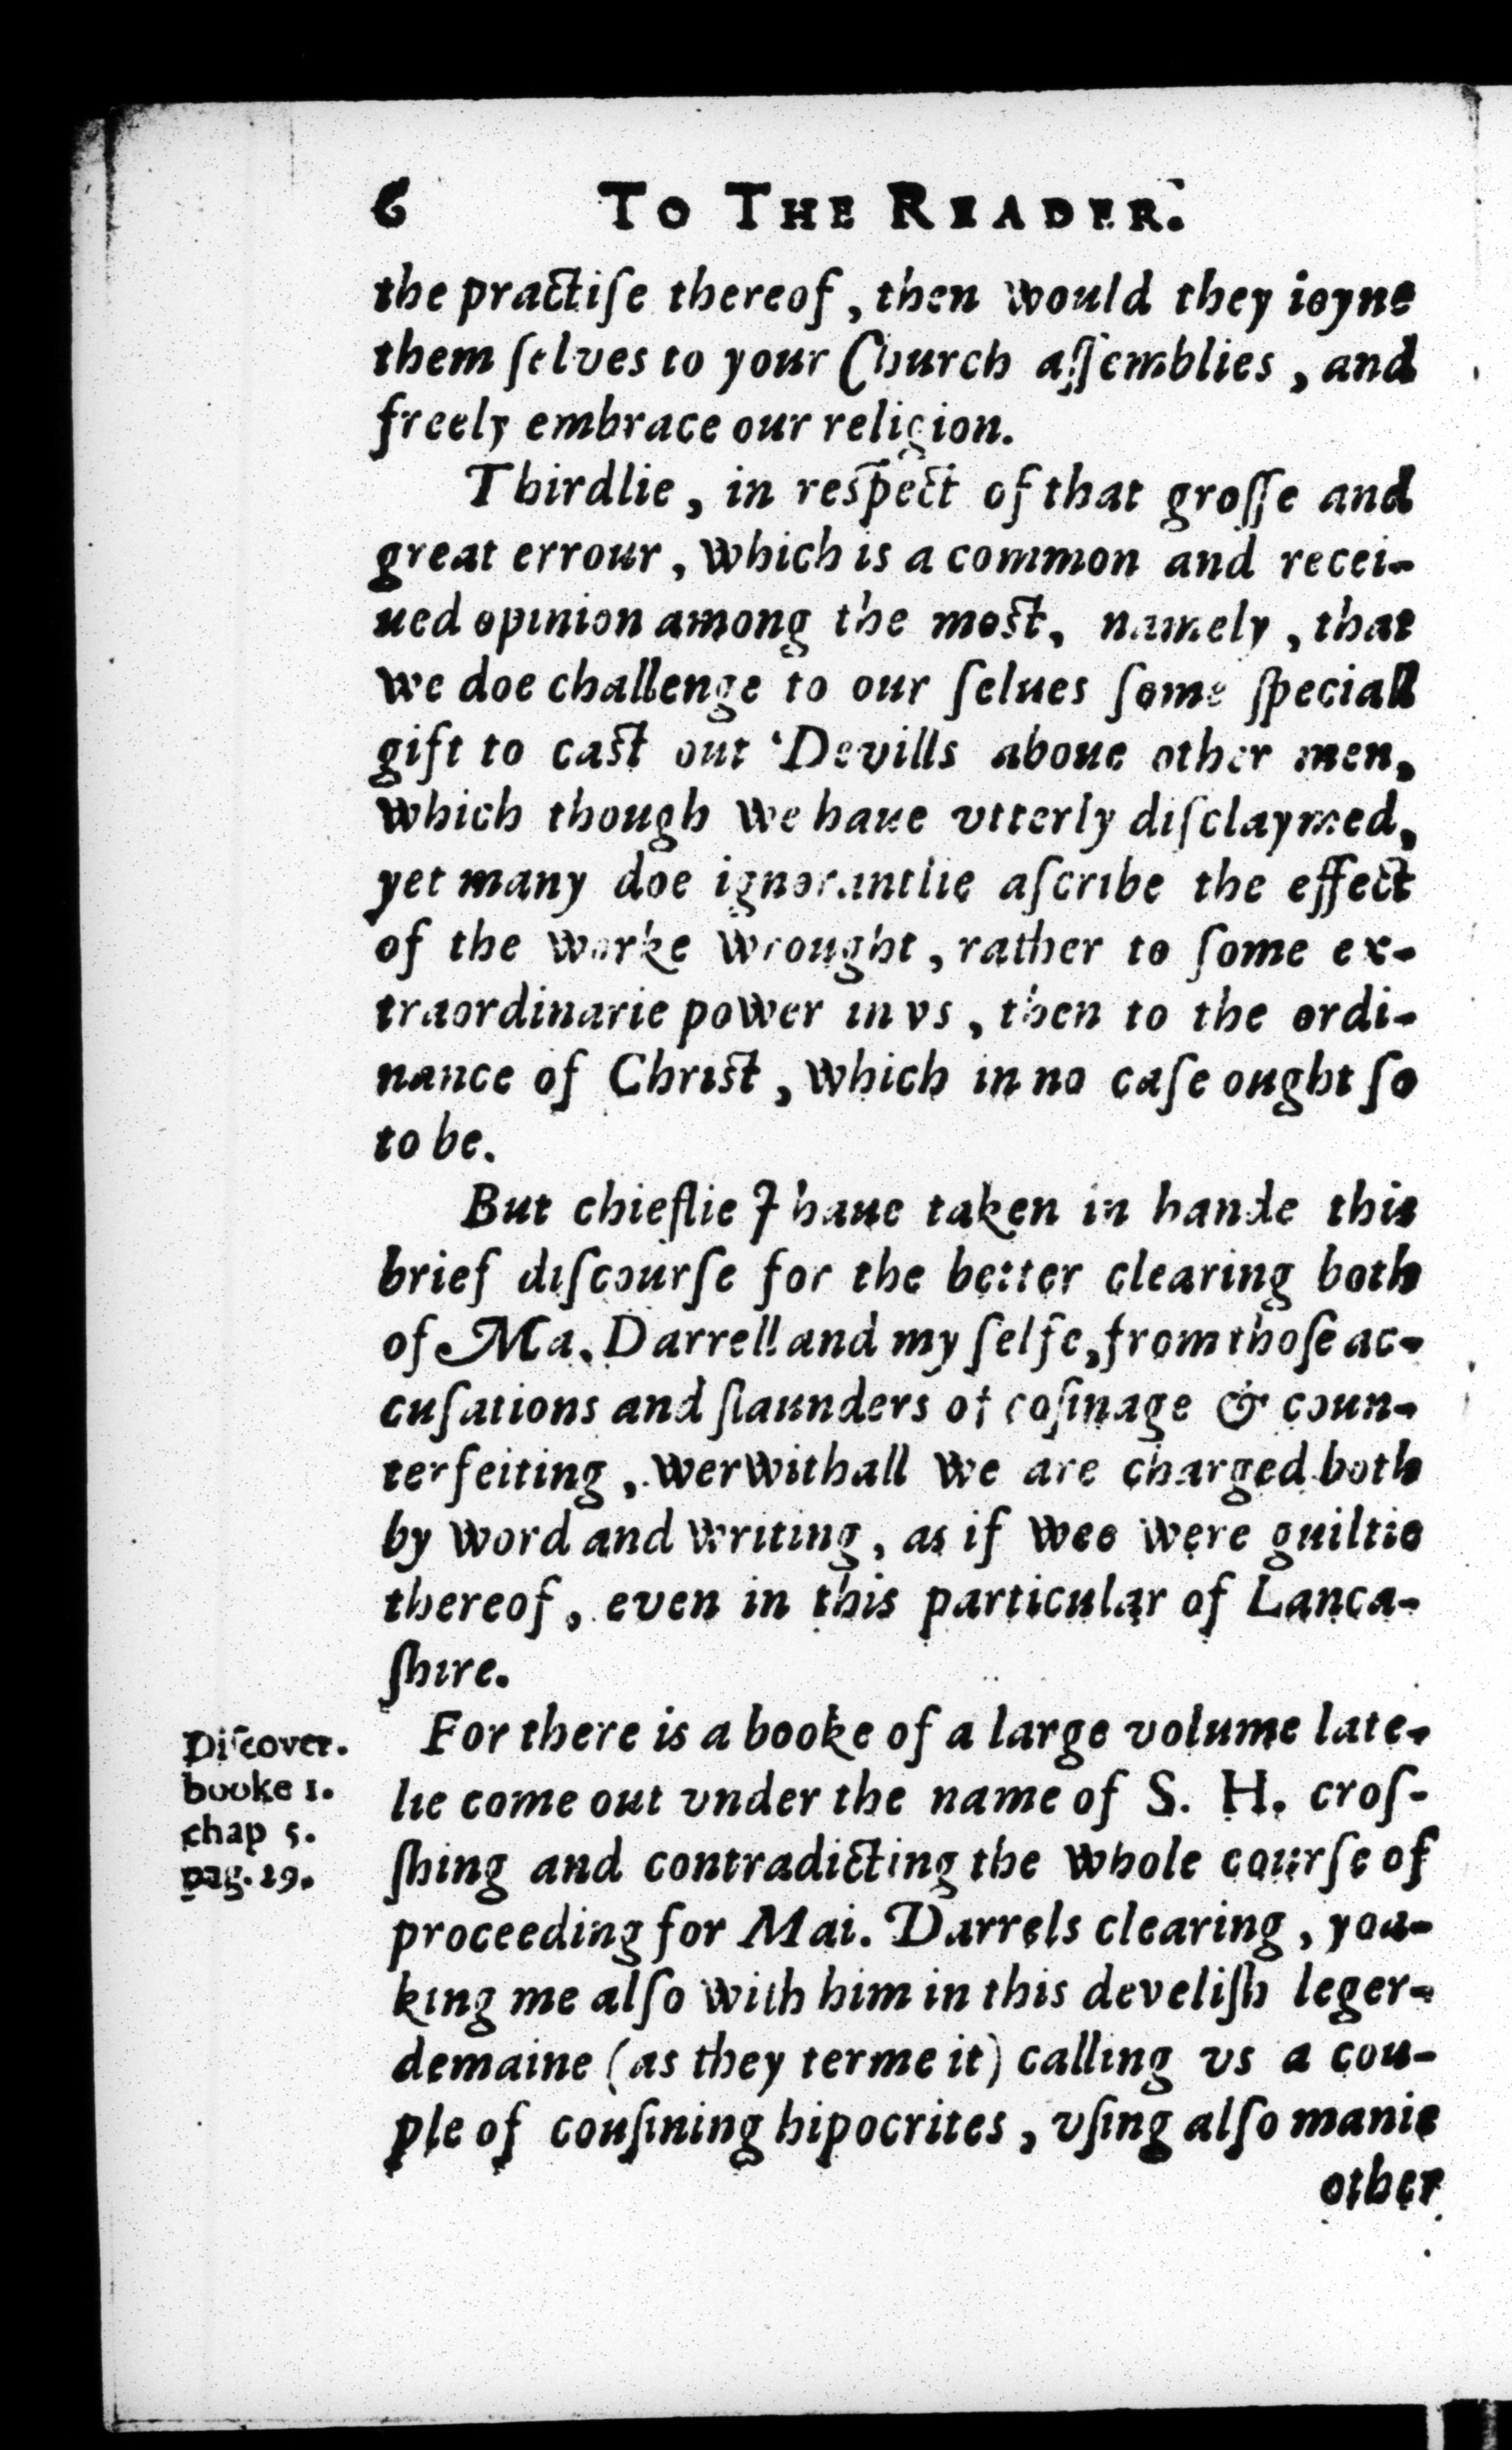 6 TO THE READER.
the practiſe thereof, then would they ioyne
them ſelves to your Church aſſemblies, and
freely embrace our religion.
Thirdlie, in reſpect of that groſſe and
great errour, which is a common and recei-
ued opinion among the moſt, namely, that
we doe challenge to our ſelues ſome ſpeciall
gift to caſt out Devills aboue other men,
which though we haue vtterly diſclaymed,
yet many doe ignorantlie aſcribe the effect
of the worke wrought, rather to ſome ex-
traordinarie power in vs, then to the ordi-
nance of Chriſt, which in no caſe ought ſo
to be.
But chieflie I haue taken in hande this
brief diſcourſe for the better clearing both
of Ma. Darrell and my ſelfe, from thoſe ac-
cuſations and ſlaunders of coſinage & coun-
terfeiting, werwithall we are charged both
by word and writing, as if wee were guiltie
thereof, even in this particular of Lanca-
ſhire.
Diſcover.
booke 1.
chap 5.
pag. 29.
For there is a booke of a large volume late-
lie come out vnder the name of S. H. croſ-
ſhing and contradicting the whole courſe of
proceeding for Mai. Darrels clearing, yoa-
king me alſo with him in this develiſh leger-
demaine (as they terme it) calling vs a cou-
ple of couſining hipocrites, vſing alſo manie
other